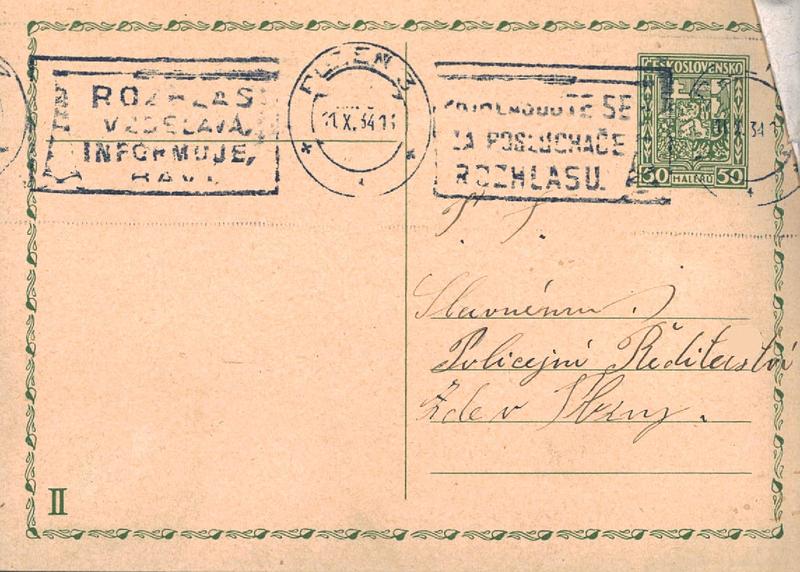 ROZHLAS
VZDĚLÁVÁ,
INFORMUJE,
BAVÍ.
PLZEŇ 3
11.X.34
PŘIHLASUJTE SE
ZA POSLUCHAČE
ROZHLASU.
ČESKOSLOVENSKO
50 HALÉŘŮ 50
P. T.
Slavnému
Policejní Ředitelství
Zde v Plzny.
II